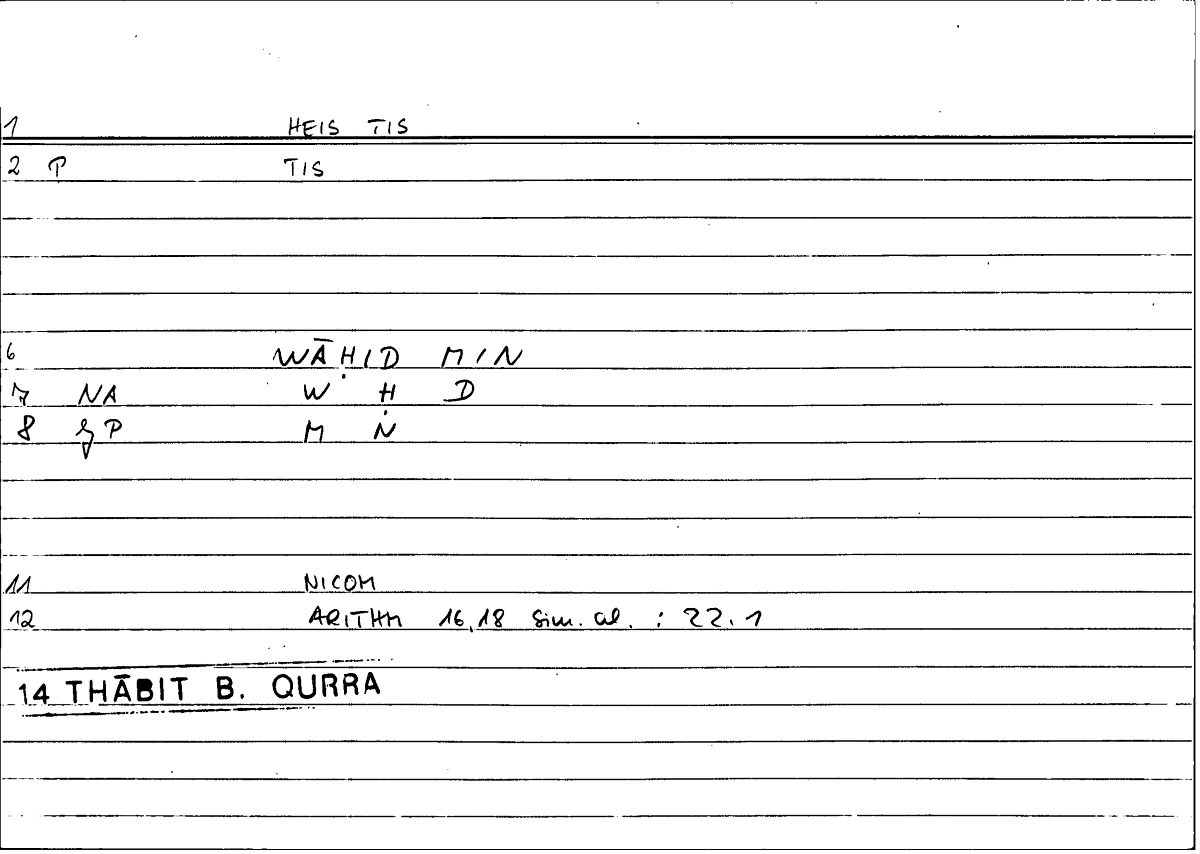 1 HEIS TIS
2 P TIS
6 WĀḤID MIN
7 NA W Ḥ D
8 P M N
11 NICOM
12 ARITHM 16,18 sim. al. : 22.1
14 THĀBIT B. QURRA